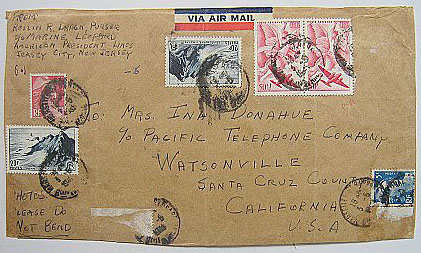 VIA AIR MAIL
FROM
PURSER
% MARINE LEOPARD
AMERICAN PRESIDENT LINES
JERSEY CITY, NEW JERSEY
TO: MRS. INA DONAHUE
% PACIFIC TELEPHONE COMPANY
WATSONVILLE
SANTA CRUZ COUNTY
CALIFORNIA
U.S.A
LEASE DO
NOT BEND